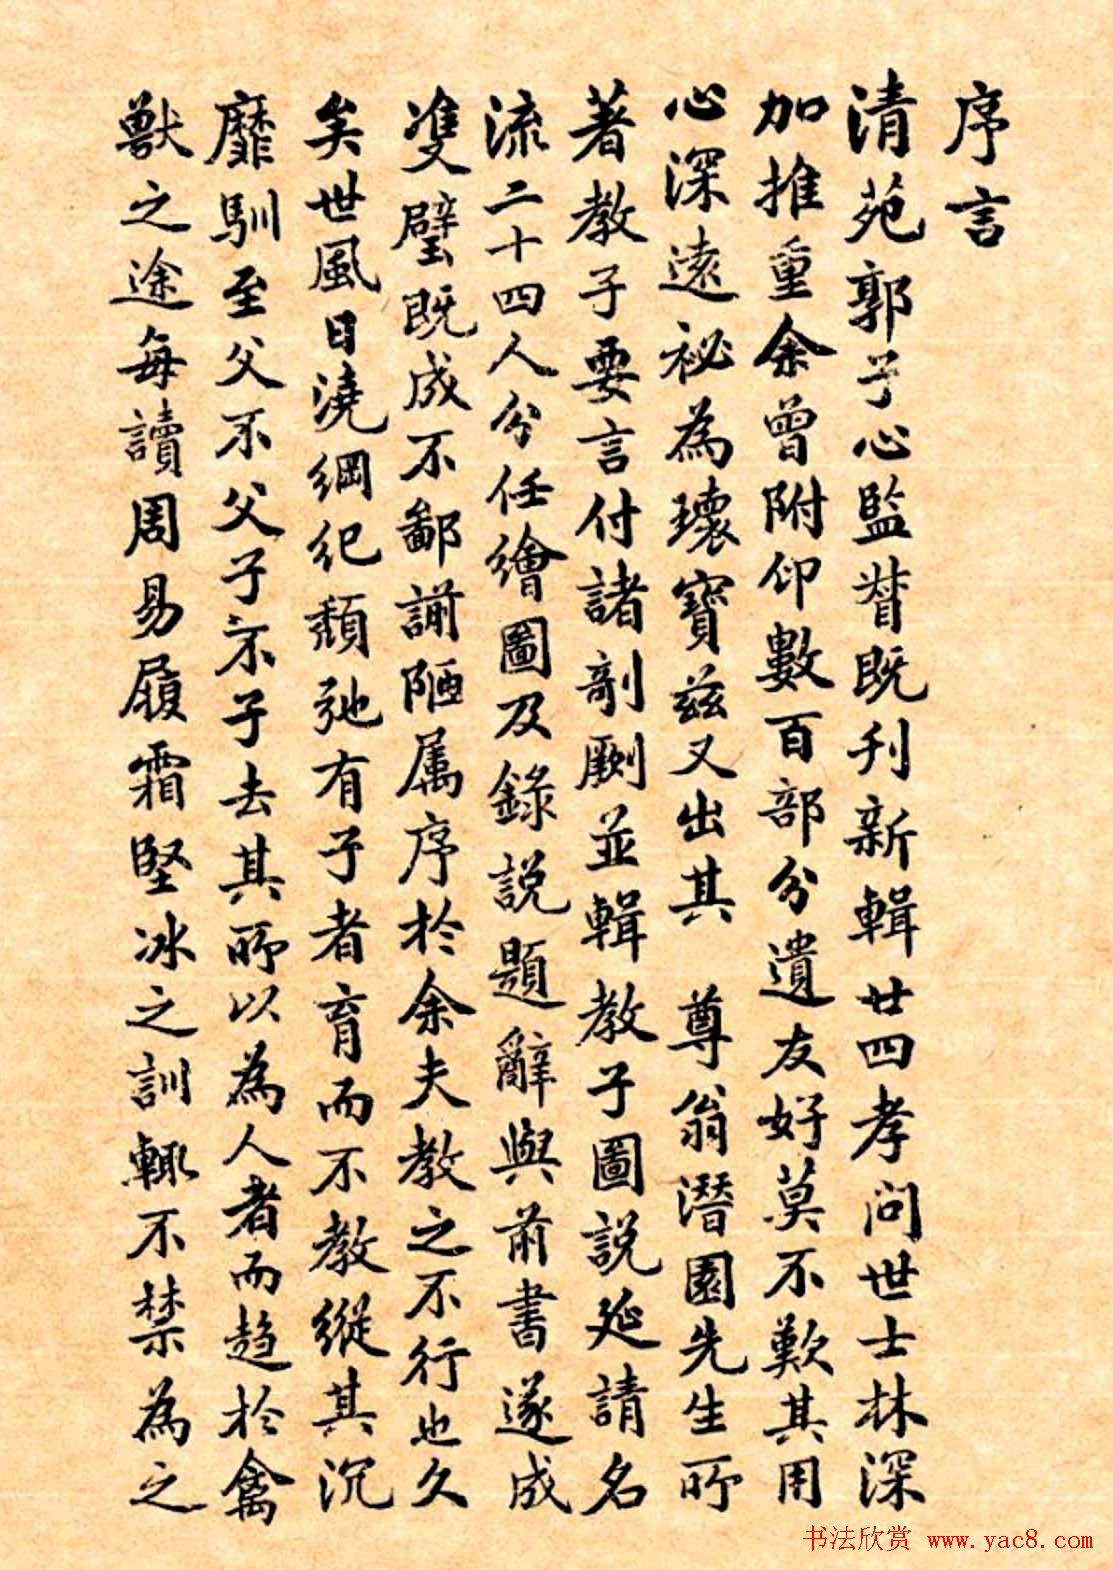 序言
清苑郭子心監督既刋新輯廿四孝問世士林深
加推重余曾附仰數百部分遺友好莫不歎其用
心深遠祕為瓌寶茲又出其　尊翁潛園先生所
著教子要言付諸剞劂並輯教子圖說延請名
流二十四人分任繪圖及錄說題辭與前書遂成
雙璧既成不鄙謭陋属序於余夫教之不行也久
矣世風日澆綱紀頹弛有子者育而不教縱其沉
靡馴至父不父子不子去其所以為人者而趋於禽
獸之途每讀周易履霜堅冰之訓輙不禁為之
书法欣赏 www.yac8.com